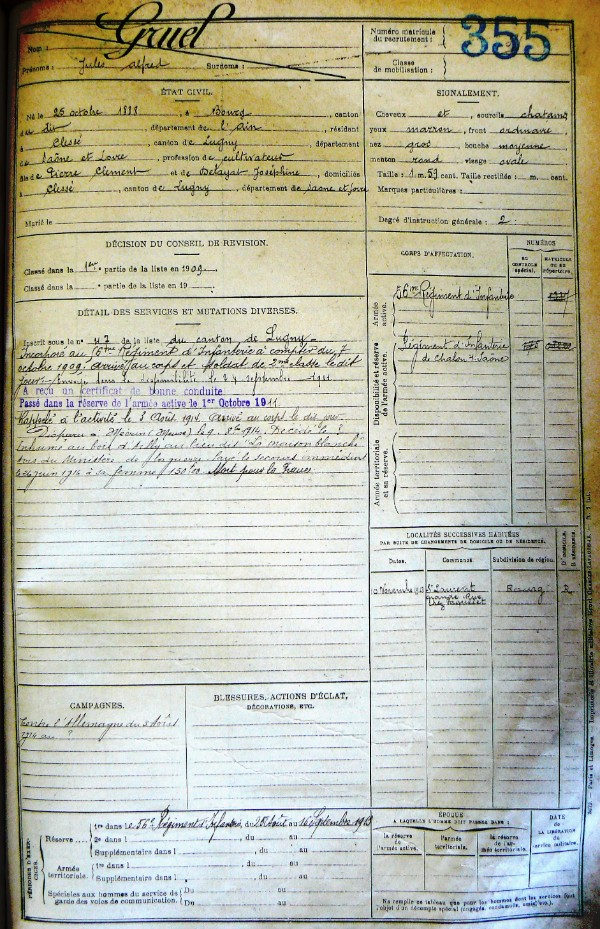 Nom : Gruel
Prénoms : Jules Alfred Surnoms :
Numéro matricule du recrutement : 355
Classe de mobilisation :
ÉTAT CIVIL.
Né le 25 octobre 1888, à Bourg, canton
dudit, département de l'Ain, résidant
à Clessé, canton de Lugny, département
de Saône et Loire, profession de cultivateur
fils de Pierre Clément et de Josephine, domiciliés
à Clessé, canton de Lugny, département de Saône et Loire
Marié le
SIGNALEMENT.
Cheveux et sourcils chatains
yeux marron, front ordinaire,
nez gros, bouche moyenne
menton rond visage ovale
Taille : 1 m. 59 cent. Taille rectifiée : m. cent.
Marques particulières :
Degré d'instruction générale : 2
DÉCISION DU CONSEIL DE REVISION.
Classé dans la 1ère partie de la liste en 1909
Classé dans la partie de la liste en 19
DÉTAIL DES SERVICES ET MUTATIONS DIVERSES.
Inscrit sous le n° 47 de la liste du canton de Lugny
Incorporé au 56me Régiment d'Infanterie à compter du 7
octobre 1909. Arrivé au corps et soldat de 2me classe le dit
jour. Envoyé dans la disponibilité le 24 septembre 1911
A reçu un certificat de bonne conduite.
Passé dans la réserve de l'armée active le 1er Octobre 1911.
Rappelé à l'activité le 3 Août 1914. Arrivé au corps le dit jour.
Disparu à (Meuse) le 1914. Décédé le
Inhumé au bois d'Ailly au lieu dit "La maison blanche"
avis du Ministère de la guerre. le secours immédiat
à sa femme 150 f00 Mort pour la France
CORPS D'AFFECTATION.
NUMÉROS
AU CONTROLE spécial.
MATRICULE OU AU RÉPERTOIRE.
Armée active.
56me Régiment d'Infanterie
Disponibilité et réserve de l'armée active.
Régiment d'Infanterie
de Chalon s/ Saône
Armée territoriale et sa réserve.
LOCALITÉS SUCCESSIVES HABITÉES
PAR SUITE DE CHANGEMENTS DE DOMICILE OU DE RÉSIDENCE.
Dates. Communes. Subdivision de région. D. domicile. R. résidence.
Novembre St Laurent Bourg R
grande Rue
chez
CAMPAGNES.
Contre l'Allemagne du 3 Août
1914 au
BLESSURES, ACTIONS D'ÉCLAT,
DÉCORATIONS, ETC.
PÉRIODES D'EXERCICES.
Réserve
1re dans le 56e Régiment d'Infanterie, du 25 Août au Septembre 1913
2e dans l , du au
Supplémentaire dans l , du au
Armée territoriale.
1re dans l , du au
Supplémentaire dans l , du au
Spéciales aux hommes du service de garde des voies de communication.
Du au
Du au
ÉPOQUE
A LAQUELLE L'HOMME DOIT PASSER DANS :
la réserve de l'armée active.
l'armée territoriale.
la réserve de l'armée territoriale.
DATE
DE LA LIBÉRATION du service militaire.
Ne remplir ce tableau que pour les hommes dont les services font
l'objet d'un décompte spécial (engagés, condamnés, omis, etc.).